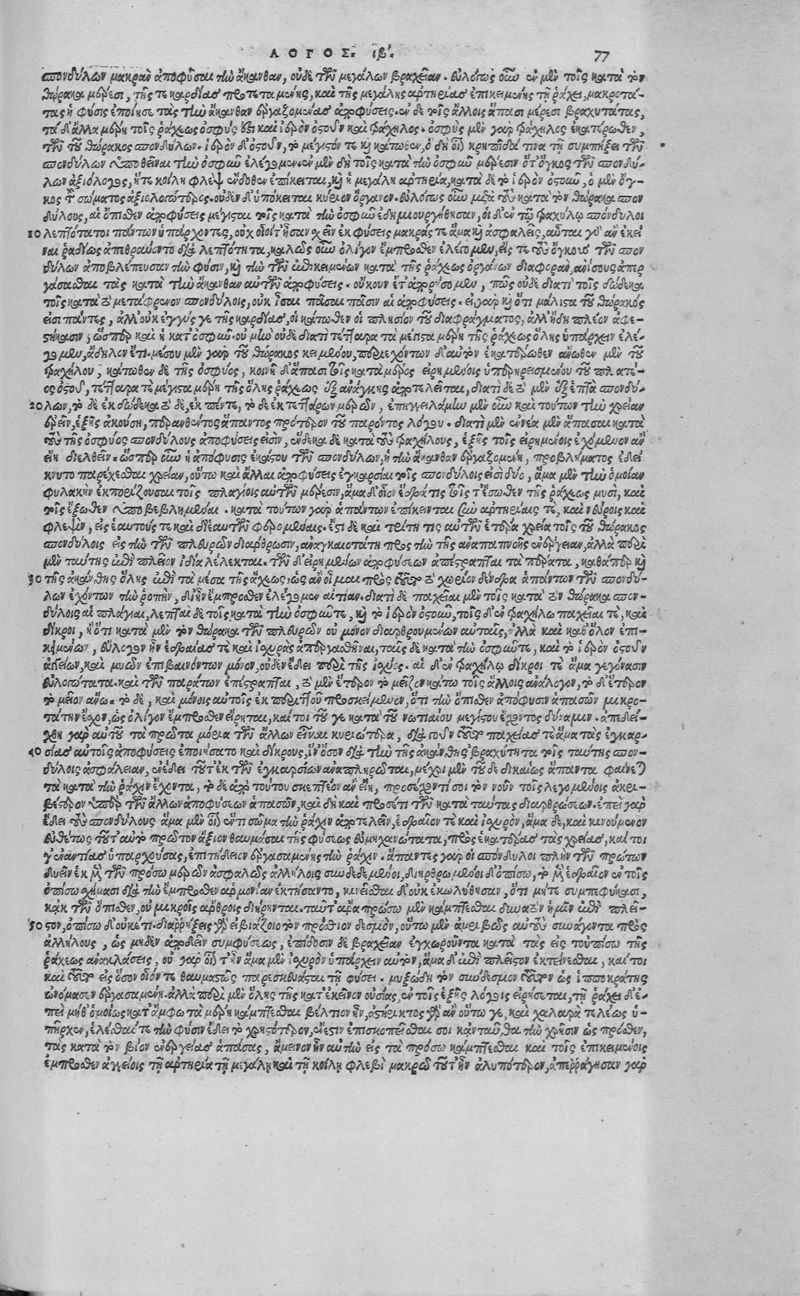 ΛΟΓΟΣ. ιβ'. 77
σπονδύλων μακραὶ ἀποφύσαι τὴν ἄκανθαν, οὐδὲ τῶν μεγάλων βραχεῖαν. εὐλόγως οὖν ἐν μὲν τοῖς κατὰ τὸν
θώρακα μέρεσι, τῆς τε καρδίας προτεταμένης, καὶ τῆς μεγάλης ἀρτηρίας ἐπικειμένης τῇ ῥάχει, μακροτά-
τας ἡ φύσις ἐποίησε τὰς τὴν ἄκανθαν ἐργαζομένας ἀποφύσεις. ἐν δὲ τοῖς ἄλλοις ἅπασι μέρεσι βραχυτάτας,
τὰ δ' ἄλλα μέρη τοῖς ῥάχεως ὀσφύς ἐστι καὶ ἱερὸν ὀστοῦν καὶ τράχηλος. ὀσφὺς μὲν γὰρ τράχηλος ἑκατέρωθεν,
τῶν τοῦ θώρακος σπονδύλων. ἱερὸν δ' ὀστοῦν, τὸ μέγιστόν τε καὶ κάτωθεν, ὃ δὴ οἷον κρηπῖδά τινα τῇ συμπήξει τῶν
σπονδύλων ὑποτεθεῖναι τὴν ὀσφὺν ἐλέγομεν. ἐν μὲν δὴ τοῖς κατὰ τὴν ὀσφὺν μέρεσιν ὅ τ' ὄγκος τῶν σπονδύ-
λων ἀξιόλογος, ἥ τε κοίλη φλὲψ ἔνδοθεν ἐπίκειται, καὶ ἡ μεγάλη ἀρτηρία, κατὰ δὲ τὸ ἱερὸν ὀστοῦν, ὁ μὲν ὄγ-
κος τοῦ σώματος ἀξιολογώτερος. οὐδὲν δ' ὑπόκειται κύριον ὄργανον. εὐλόγως οὖν μετὰ τοὺς κατὰ τὸν θώρακα σπον
δύλους, αἱ ὄπισθεν ἀποφύσεις μέγισται τοῖς κατὰ τὴν ὀσφὺν ἐδημιουργήθησαν, οἱ δ' ἐν τῷ τραχήλῳ σπόνδυλοι
10 λεπτότατοι πάντων ὑπάρχοντες, οὐχ οἷοί τ' ἦσαν ἔχειν ἐκφύσεις μακράς τε ἅμα καὶ ἀσφαλεῖς, αὗται γὰρ ἂν ἐκεῖ
ναι ῥᾳδίως ἀπεθραύοντο διὰ λεπτότητα, καλῶς οὖν ὀλίγον ἔμπροσθεν ἐλέγομεν, εἰς τε τοὺς ὄγκους τῶν σπον
δύλων ἀποβλέπουσαν τὴν φύσιν, καὶ τὴν τῶν ἐπικειμένων κατὰ τῆς ῥάχεως ὀργάνων διαφορὰν, ἀνίσους ἀπερ
γάσασθαι τὰς κατὰ τὴν ἄκανθαν αὐτῶν ἀποφύσεις. οὔκουν ἔτ' ἀπορήσομεν, πῶς οὐδὲ διατὶ τοῖς δώδεκα
τοῖς κατὰ τὸ μετάφρενον σπονδύλοις, οὐκ ἴσαι πᾶσαι πᾶσιν αἱ ἀποφύσεις. εἰ γὰρ καὶ ὅτι μάλιστα τοῦ θώρακός
εἰσι πάντες, ἀλλ' οὐκ ἐγγύς γε τῆς καρδίας, οἱ κάτωθεν οἱ πλησίον τοῦ διαφράγματος, ἀλλ' ἤδη πλέον ἀφε-
στήκασιν, ὥσπερ καὶ ἡ κατ' ὀσφύν. οὐ μὴν οὐδὲ διατὶ τέτταρα τὰ μέγιστα μέρη τῆς ῥάχεως ὅλης ὑπάρχειν ἐλέ-
γομεν, ἄδηλον ἔτι. μέσου μὲν γὰρ τοῦ θώρακος κειμένου, περιεχόντων δ' αὐτὸν ἑκατέρωθεν ἄνωθεν μὲν τοῦ
τραχήλου, κάτωθεν δὲ τῆς ὀσφύος, κοινῇ δ' ἅπασι τοῖς κατὰ μέρος εἰρημένοις ὑπηρεισμένου τοῦ πλατέ-
ος ὀστοῦ, τέτταρα τὰ μέγιστα μέρη τῆς ὅλης ῥάχεως ἐξ ἀνάγκης ἀποτελεῖται, διατὶ δὲ τὸ μὲν ἐξ ἑπτὰ σπονδύ-
20 λων, τὸ δὲ ἐκ δώδεκα, τὸ δὲ, ἐκ πέντε, τὸ δὲ ἐκ τεττάρων μερῶν, ἐπηγγειλάμην μὲν οὖν καὶ τούτων τὴν χρείαν
ἐρεῖν, ἑξῆς ἀκούσῃ, περανθέντος ἅπαντος πρότερον τοῦ παρόντος λόγου. διατὶ μὲν ἐννέα μὲν ἅπασαι κατὰ
τοὺς τῆς ὀσφύος σπονδύλους ἀποφύσεις εἰσὶν, ἕνδεκα δὲ κατὰ τοὺς τραχήλους, ἑξῆς τοῖς εἰρημένοις ἑπόμενον ἂν
εἴη διελθεῖν. ὥσπερ οὖν ἡ ἀπόφυσις ἑκάστου τῶν σπονδύλων, ἡ τὴν ἄκανθαν ἐργαζομένη, προβλήματος ἐδεί
κνυτο παρέχεσθαι χρείαν, οὕτω καὶ ἄλλαι ἀποφύσεις ἐγκάρσιαι τοῖς σπονδύλοις εἰσὶ δύο, ἅμα μὲν τὴν ὁμοίαν
φυλακὴν ἐκπορίζουσαι τοῖς πλαγίοις αὐτῶν μέρεσιν, ἅμα δ' οἷον ἕδρα τις τοῖς τ' ἔσωθεν τῆς ῥάχεως μυσὶ, καὶ
τοῖς ἔξωθεν ὑποβεβλημέναι. κατὰ τούτων γὰρ ἁπάντων ἐπίκεινται σὺν ἀρτηρίαις τε, καὶ νεύροις καὶ
φλεψὶν, εἰς ἑαυτούς τε καὶ δι' αὐτῶν φερομέναις. ἔστι δὲ καὶ τρίτη τις αὐτῶν ἑτέρα χρεία τοῖς τοῦ θώρακος
σπονδύλοις εἰς τὴν τῶν πλευρῶν διάρθρωσιν, ἀναγκαιοτάτη πρὸς τὴν τῆς ἀναπνοῆς ἐνέργειαν, ἀλλὰ περὶ
μὲν ταύτης ἐπὶ πλεῖον ἰδίᾳ λέλεκται. τῶν δ' εἰρημένων ἀποφύσεων ἀπέστραπται τὰ πέρατα, καθάπερ καὶ
30 τῆς ἀκάνθης ὅλης ἐπὶ τὰ μέσα τῆς ῥάχεως, ὡς ἂν οἶμαι πρὸς τοῦτο τὸ χωρίον δεῦρο ἁπάντων τῶν σπονδύ-
λων ἐχόντων τὴν ῥοπὴν, δι' ἣν ἔμπροσθεν ἐλέγομεν αἰτίαν. διατὶ δὲ παχεῖαι μὲν τοῖς κατὰ τὸν θώρακα σπον-
δύλοις αἱ πλάγιαι, λεπταὶ δὲ τοῖς κατὰ τὴν ὀσφύν τε, καὶ τὸ ἱερὸν ὀστοῦν, τοῖς δ' ἐν τραχήλῳ παχεῖαί τε, καὶ
δίκροι, ἢ ὅτι κατὰ μὲν τὸν θώρακα τῶν πλευρῶν οὐ μόνον διαρθρουμένων αὐταῖς, ἀλλὰ καὶ καθόλον ἐπι-
κειμένων, εὔλογον ἦν ἑδραίας τε καὶ ἰσχυρὰς ἀπεργασθῆναι, ταῖς δὲ κατὰ τὴν ὀσφύν τε, καὶ τὸ ἱερὸν ὀστοῦν
ἀγγείων, καὶ μυῶν ἐπιβαινόντων μόνον, οὐδὲν ἔδει περὶ τῆς ἰσχύος. αἱ δ' ἐν τραχήλῳ δίκροι τε ἅμα γεγόνασιν
εὐλογώτατα. καὶ τῶν περάτων ἐπέστραπται, τὸ μὲν ἕτερον τὸ μεῖζον κάτω τοῖς ἄλλοις ἀνάλογον, τὸ δ' ἕτερον
τὸ μεῖον ἄνω. τὸ δὲ, καὶ μόνοις αὐτοῖς ἐκ περιττοῦ προσκείμενον, ὅτι τὴν ὄπισθεν ἀπόφυσιν ἁπασῶν μικρο-
τάτην ἔχον, ὡς ὀλίγον ἔμπροσθεν εἴρηται, καίτοι τοῦ γε κατὰ τοῦ νωτιαίου μεγίστου ἔχοντος δύναμιν. ἀπεδεί-
χθη γὰρ αὐτοῦ τὰ πρῶτα μόρια τῶν ἄλλων εἶναι κυριώτερα, διὰ οὖν τοῦτο παχείας τε ἅμα τὰς ἐγκαρ-
40 σίας αὐτοῖς ἀποφύσεις ἐποιήσατο καὶ δίκρους, ἵν' ὅσον διὰ τὴν τῆς ἀκάνθης βραχύτητα τοῖς ταύτης σπον-
δύλοις ἀσφάλειαν, ἐνέδει τοῦτ' ἐκ τῶν ἐγκαρσίων ἀναπληρῶται, μέχρι μὲν τοῦδε δικαίως ἅπαντα φαίνεται
τὰ κατὰ τὴν ῥάχιν ἔχοντα, τὸ δὲ ἀπὸ τούτου σκεπτέον ἂν εἴη, προσέχοντί σοι τὸν νοῦν τοῖς λεγομένοις ἀκρι-
βέστερον ὑπὲρ τῶν ἄλλων ἀποφύσεων ἁπασῶν, καὶ δὴ καὶ προσέτι τῶν κατὰ ταύτας διαρθρώσεων. ἐπεὶ γὰρ
ἔδει τοὺς σπονδύλους ἅμα μὲν οἷον ὅτι σῶμα τὴν ῥάχιν ἀποτελεῖν, ἑδραῖόν τε καὶ ἰσχυρὸν, ἅμα δὲ, καὶ κινούμενον
εὐθέτως τοῦτ' αὐτὸ πρῶτον ἄξιον θαυμάσαι τῆς φύσεως εὐμηχανώτατα, πρὸς ἑκατέρας τὰς χρείας, καίτοι
γ' ἐναντίας ὑπαρχούσας, ἐπιτήδειον ἐργασαμένης τὴν ῥάχιν. ἅπαντες γὰρ οἱ σπόνδυλοι πλὴν τῶν πρώτων
δυεῖν ἐκ μὲν τῶν πρόσω μερῶν ἀσφαλῶς ἀλλήλοις συνδεδεμένοι, διηρθρωμένοι δ' ὀπίσω, τὸ μὲν ἑδραῖον ἐν τοῖς
ὀπίσω ὀχήμασι διὰ τὴν ἔμπροσθεν ἁρμονίαν ἐκτήσαντο, κινεῖσθαι δ' οὐκ ἐκωλύθησαν, ὅτι μήτε συμπεφύκασι,
κἀκ τῶν ὄπισθεν, οὐ μικροῖς ἄρθροις διῄρηνται. ταῦτ' ἄρα πρόσω μὲν κάμπτεσθαι δύναται ἡμῖν ἐπὶ πλεῖ-
50 στον, ὀπίσω δ' οὐκέτι. διαρρήξεις γὰρ εἰ βιάζοιο τὸν πρόσθιον δεσμὸν, οὕτω μὲν ἀμεμβῶς αὐτοὺς συνάγοντα πρὸς
ἀλλήλους, ὡς μηδὲν ἀποδεῖν συμφύσεως, ἐπίδοσιν δὲ βραχεῖαν ἐγχωροῦντα κατὰ τὰς εἰς τοὐπίσω τῆς
ῥάχεως ἀνακλάσεις, οὐ γὰρ οἷόν τ' ἦν ἅμα μὲν ἰσχυρὸν ὑπάρχειν αὐτὸν, ἅμα δ' ἐπὶ πλεῖστον ἐκτείνεσθαι, καίτοι
καὶ τοῦτο εἰς ὅσον οἷόν τε θαυμαστῶς παρεσκεύασται τῇ φύσει. μυξώδη τὸν σύνδεσμον τοῦτον ὡς ἱπποκράτης
ὠνόμασεν ἐργασαμένη. ἀλλὰ περὶ μὲν ὅλης τῆς κατ' ἐκεῖνον οὐσίας, ἐν τοῖς ἑξῆς λόγοις εἰρήσεται, τῇ ῥάχει δ' ἐ-
πεὶ μηδ' ὁμοίως κατ' ἄμφω τὰ μέρη κάμπτεσθαι βέλτιον ἦν, ἀστήρικτος γὰρ ἂν οὕτω γε, καὶ χαλαρὰ τελέως ὑ-
πῆρχεν, ἑλέσθαι τε τὴν φύσιν ἔδει τὸ χρηστότερον, ἔνεστιν ἐπισκοπεῖσθαί σοι κἀνταῦθα τὴν χρῆσιν ὡς πρόσθεν,
τὰς κατὰ τὸν βίον ἐνεργείας ἁπάσας, ἄμεινον ἦν αὐτὴν εἰς τὰ πρόσω κάμπτεσθαι καὶ τοῖς ἐπικειμένοις
ἔμπροσθεν ἀγγείοις τῇ ἀρτηρίᾳ τῇ μεγάλῃ καὶ τῇ κοίλῃ φλεβὶ μακρῷ τοῦτ' ἦν ἀλυπότερον, ἀπερράγησαν γὰρ